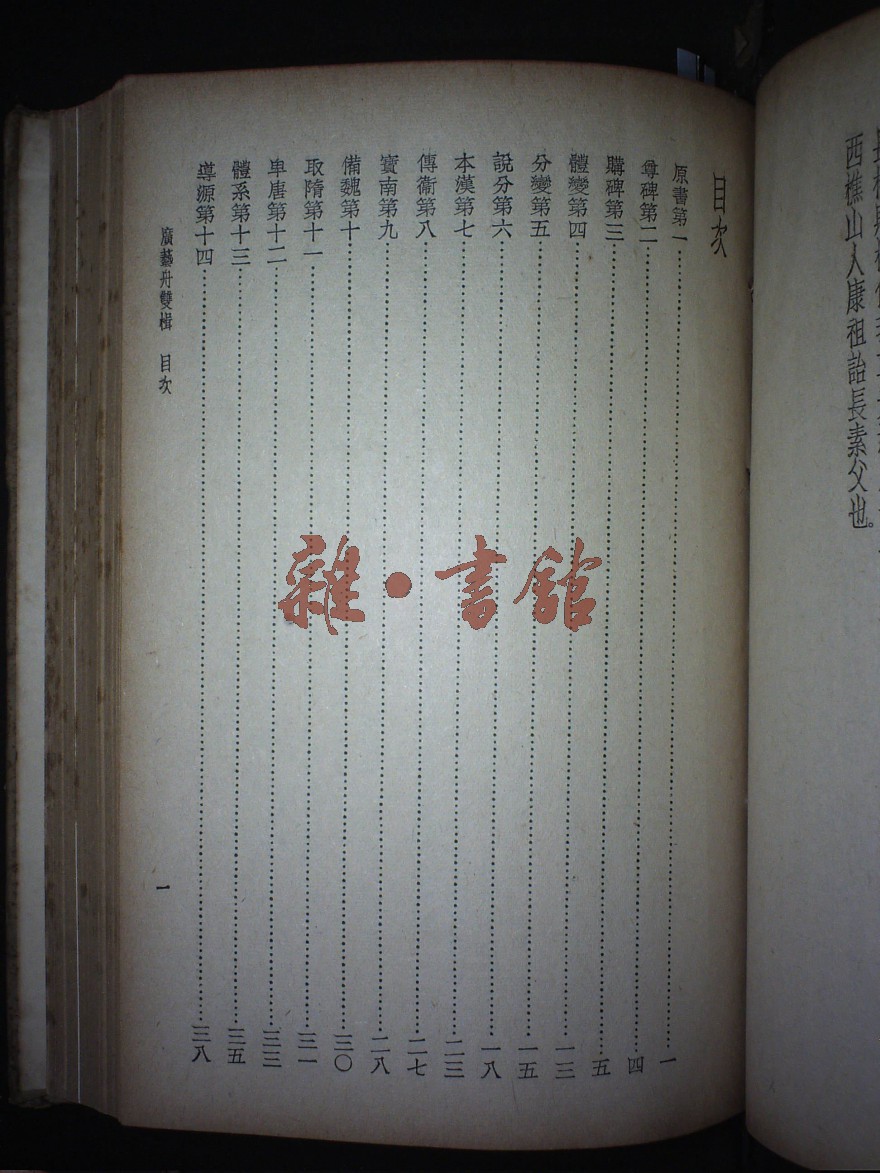 西樵山人康祖詒長素父也。
目次
原書第一……一
尊碑第二……四
購碑第三……五
體變第四……一三
分變第五……一五
說分第六……一八
本漢第七……二三
傳衞第八……二七
寶南第九……二八
備魏第十……三〇
取隋第十一……三一
卑唐第十二……三三
體系第十三……三五
導源第十四……三八
廣藝舟雙楫 目次
一
雜·書館